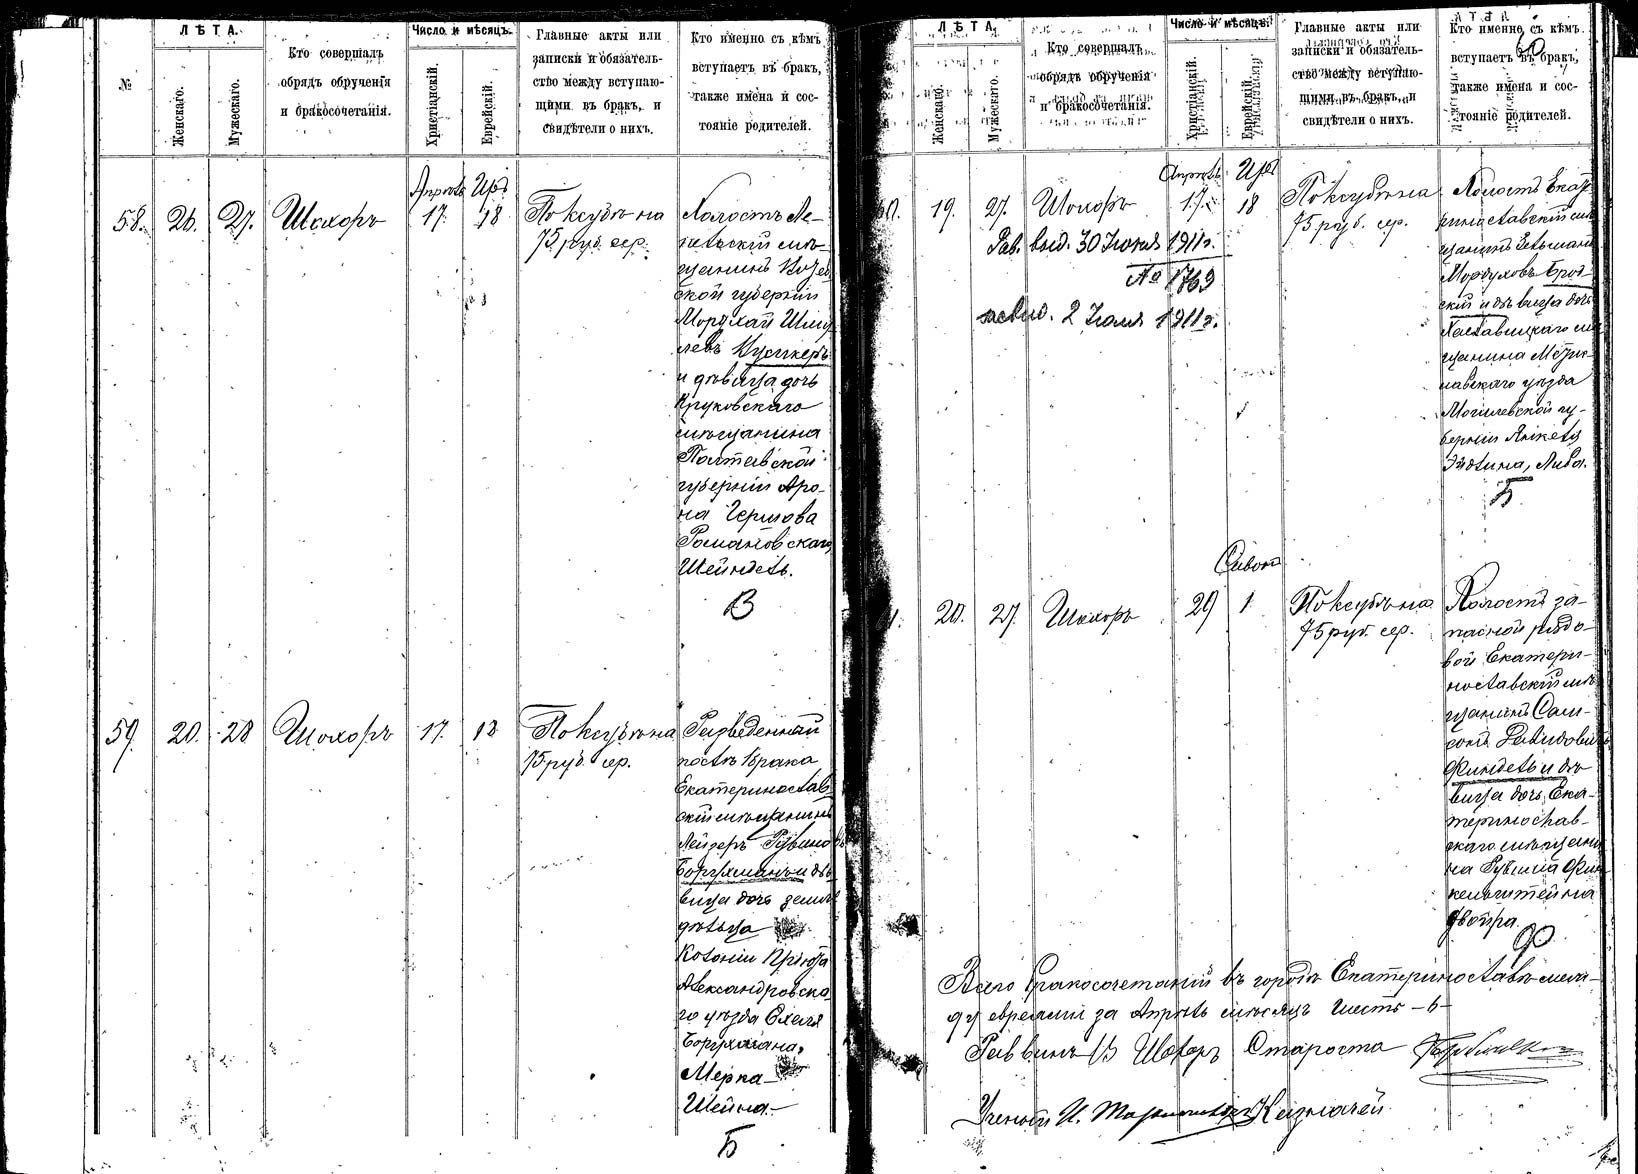 №
ЛѢТА.
Женскаго.
Мужескаго.
Кто совершалъ
обрядъ обрученія
и бракосочетанія.
Число и мѣсяцъ.
Христіанскій.
Еврейскій.
Главные акты или
записки и обязатель-
ство между вступаю-
щими въ бракъ, и
свидѣтели о нихъ.
Кто именно съ кѣмъ
вступаетъ въ бракъ,
также имена и сос-
тояніе родителей.
58. 26. 27. Шохоръ
Апрѣль Иръ
17. 18
По ксубѣ на
75 руб. сер.
Холостъ Ле-
пельскій мѣ-
щанинъ Витеб
ской губерніи
Мордхай Шму
левъ
и дѣвица дочь
Крюковскаго
мѣщанина
Полтавской
губерніи Аро-
на Гершова
Романовскаго,
Шейндель.
В
59. 20. 28 Шохоръ 17. 18
По ксубѣ на
75 руб. сер.
Разведенный
послѣ 1 брака
Екатеринослав
скій мѣщанинъ
Лейзеръ Рувиновъ
Боруxманъ и дѣ-
вица дочь земле
дѣльца
Колоніи
Александровска
го уѣзда Ехеля
Борухмана,
Мерка-
Шейна.
Б
ЛѢТА.
Женскаго.
Мужескаго.
Кто совершалъ
обрядъ обрученія
и бракосочетанія.
Число и мѣсяцъ.
Христіанскій.
Еврейскій.
Главные акты или
записки и обязатель-
ство между вступаю-
щими въ бракъ, и
свидѣтели о нихъ.
Кто именно съ кѣмъ
вступаетъ въ бракъ,
также имена и сос-
тояніе родителей.
60
60. 19. 27. Шохоръ
Апрѣль Иръ
17. 18
выд. 30 Іюня 1911 г.
№ 1763
2 Іюля 1911 г.
По ксубѣ на
75 руб. сер.
Холостъ Екате
ринославскій мѣ
щанинъ
Мордуховъ Брод-
скій и дѣвица дочь
Хославицкаго мѣ
щанина Мсти-
славскаго уѣзда
Могилевской гу-
берніи Янкеля
Эйдлина, Либа.
Б
61. 20. 27. Шохоръ
Сивонъ
29 1
По ксубѣ на
75 руб. сер.
Холостъ за-
пасной рядо-
вой Екатери-
нославскій мѣ
щанинъ Сам-
сонъ Давидовичъ
Финдель и дѣ-
вица дочь Ека-
теринослав-
скаго мѣщани
на Рувина Фин
кельштейна
Двойра.
Ф
Всего бракосочетаній въ городѣ Екатеринославѣ меж-
ду евреями за Апрѣль мѣсяцъ шесть -6-
Раввинъ В Шохоръ Староста
Ученый И. Казначей